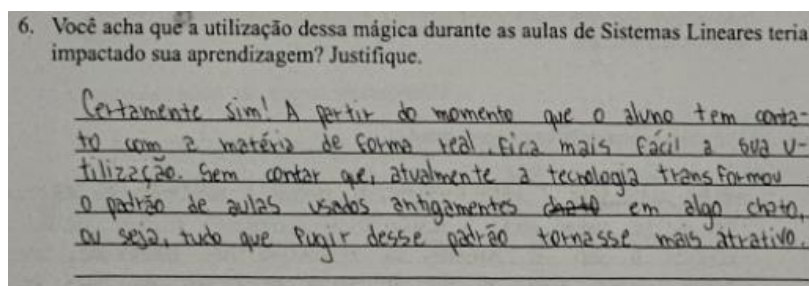 6. Você acha que a utilização dessa mágica durante as aulas de Sistemas Lineares teria
impactado sua aprendizagem? Justifique.
Certamente sim! A partir do momento que o aluno tem conta-
to com a matéria de forma real, fica mais fácil a sua u-
tilização. Sem contar que, atualmente a tecnologia transformou
o padrão de aulas usados antigamentes chato em algo chato,
ou seja, tudo que fugir desse padrão tornasse mais atrativo.